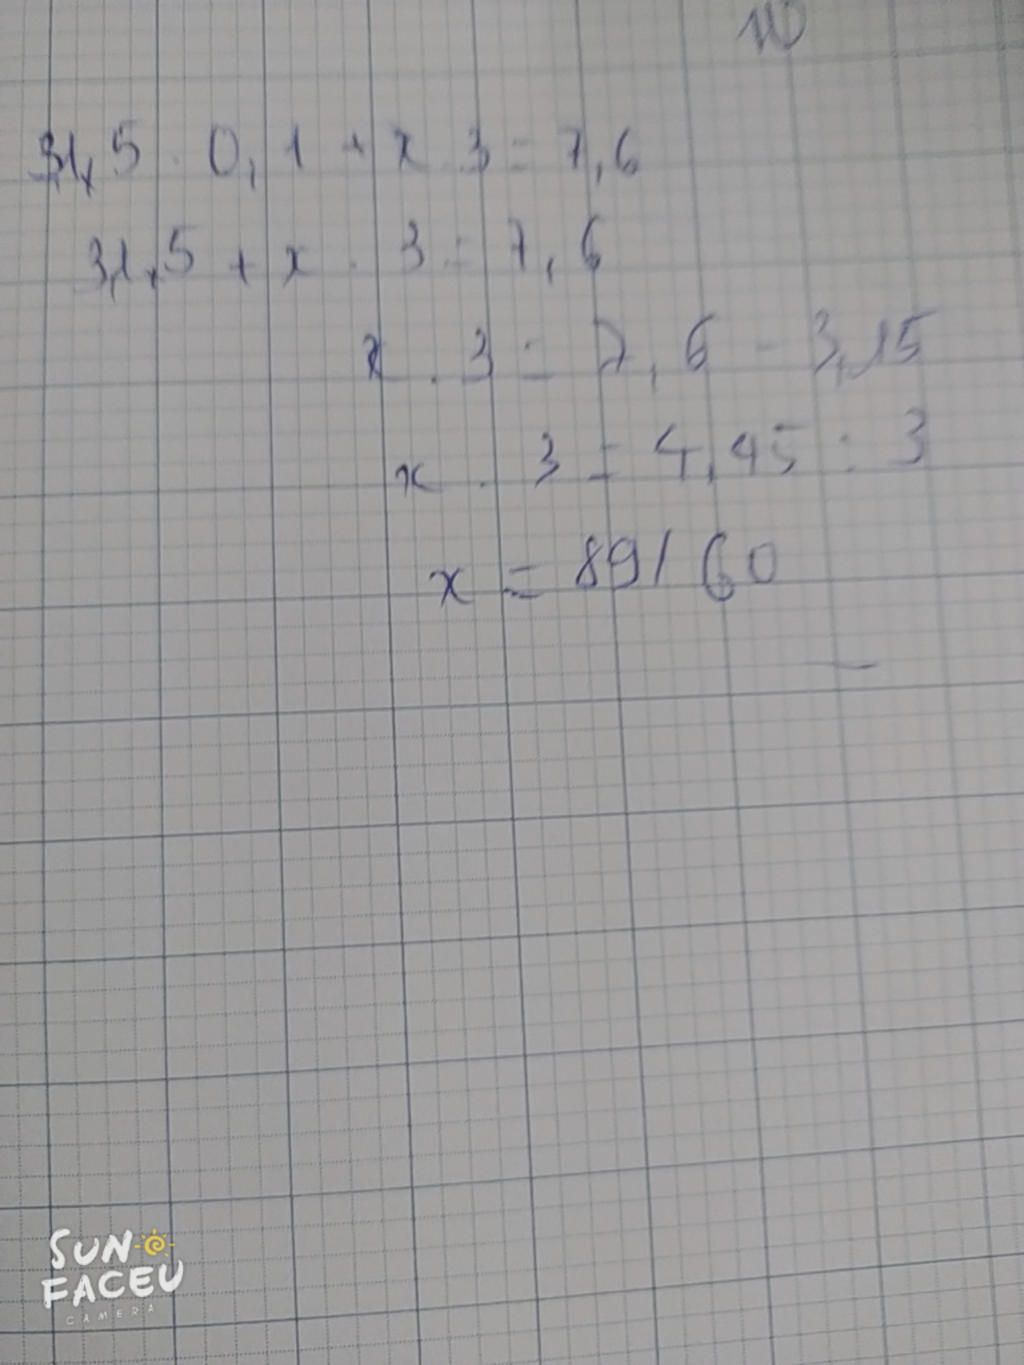 31,5 . 0,1 + x . 3 = 7,6
31,5 + x . 3 = 7,6
x . 3 = 7,6 - 3,15
x . 3 = 4,45 : 3
x = 89/60
SUN
FACEU
CAMERA